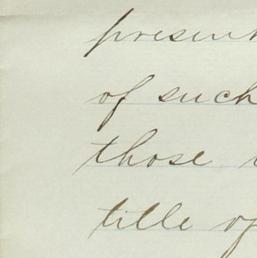 present
of such
those
title of